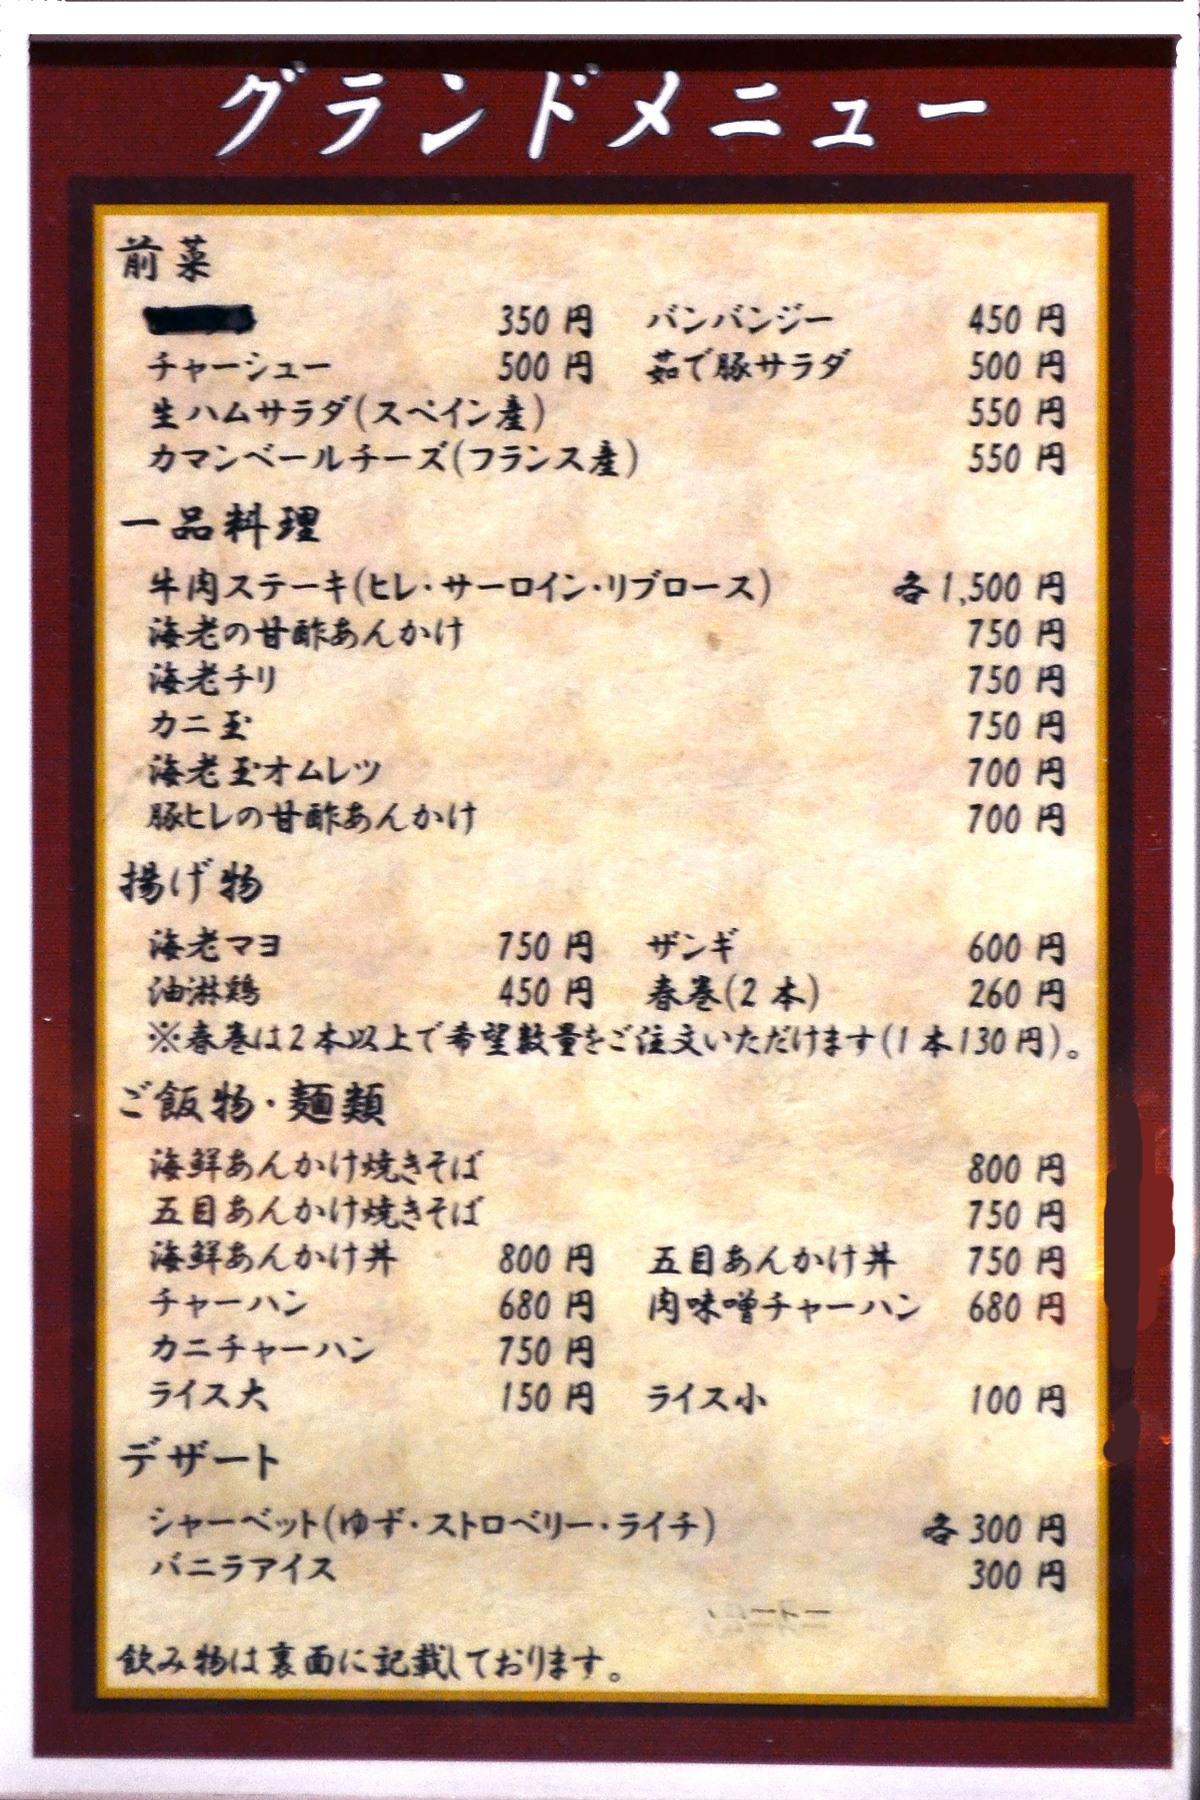 グランドメニュー
前菜
350 円 バンバンジー 450 円
チャーシュー 500 円 茹で豚サラダ 500 円
生ハムサラダ(スペイン産) 550 円
カマンベールチーズ(フランス産) 550 円
一品料理
牛肉ステーキ(ヒレ・サーロイン・リブロース) 各1,500 円
海老の甘酢あんかけ 750 円
海老チリ 750 円
カニ玉 750 円
海老玉オムレツ 700 円
豚ヒレの甘酢あんかけ 700 円
揚げ物
海老マヨ 750 円 ザンギ 600 円
油淋鶏 450 円 春巻(2 本) 260 円
※春巻は2 本以上で希望数量をご注文いただけます(1 本130 円)。
ご飯物・麺類
海鮮あんかけ焼きそば 800 円
五目あんかけ焼きそば 750 円
海鮮あんかけ丼 800 円 五目あんかけ丼 750 円
チャーハン 680 円 肉味噌チャーハン 680 円
カニチャーハン 750 円
ライス大 150 円 ライス小 100 円
デザート
シャーベット(ゆず・ストロベリー・ライチ) 各300 円
バニラアイス 300 円
飲み物は裏面に記載しております。